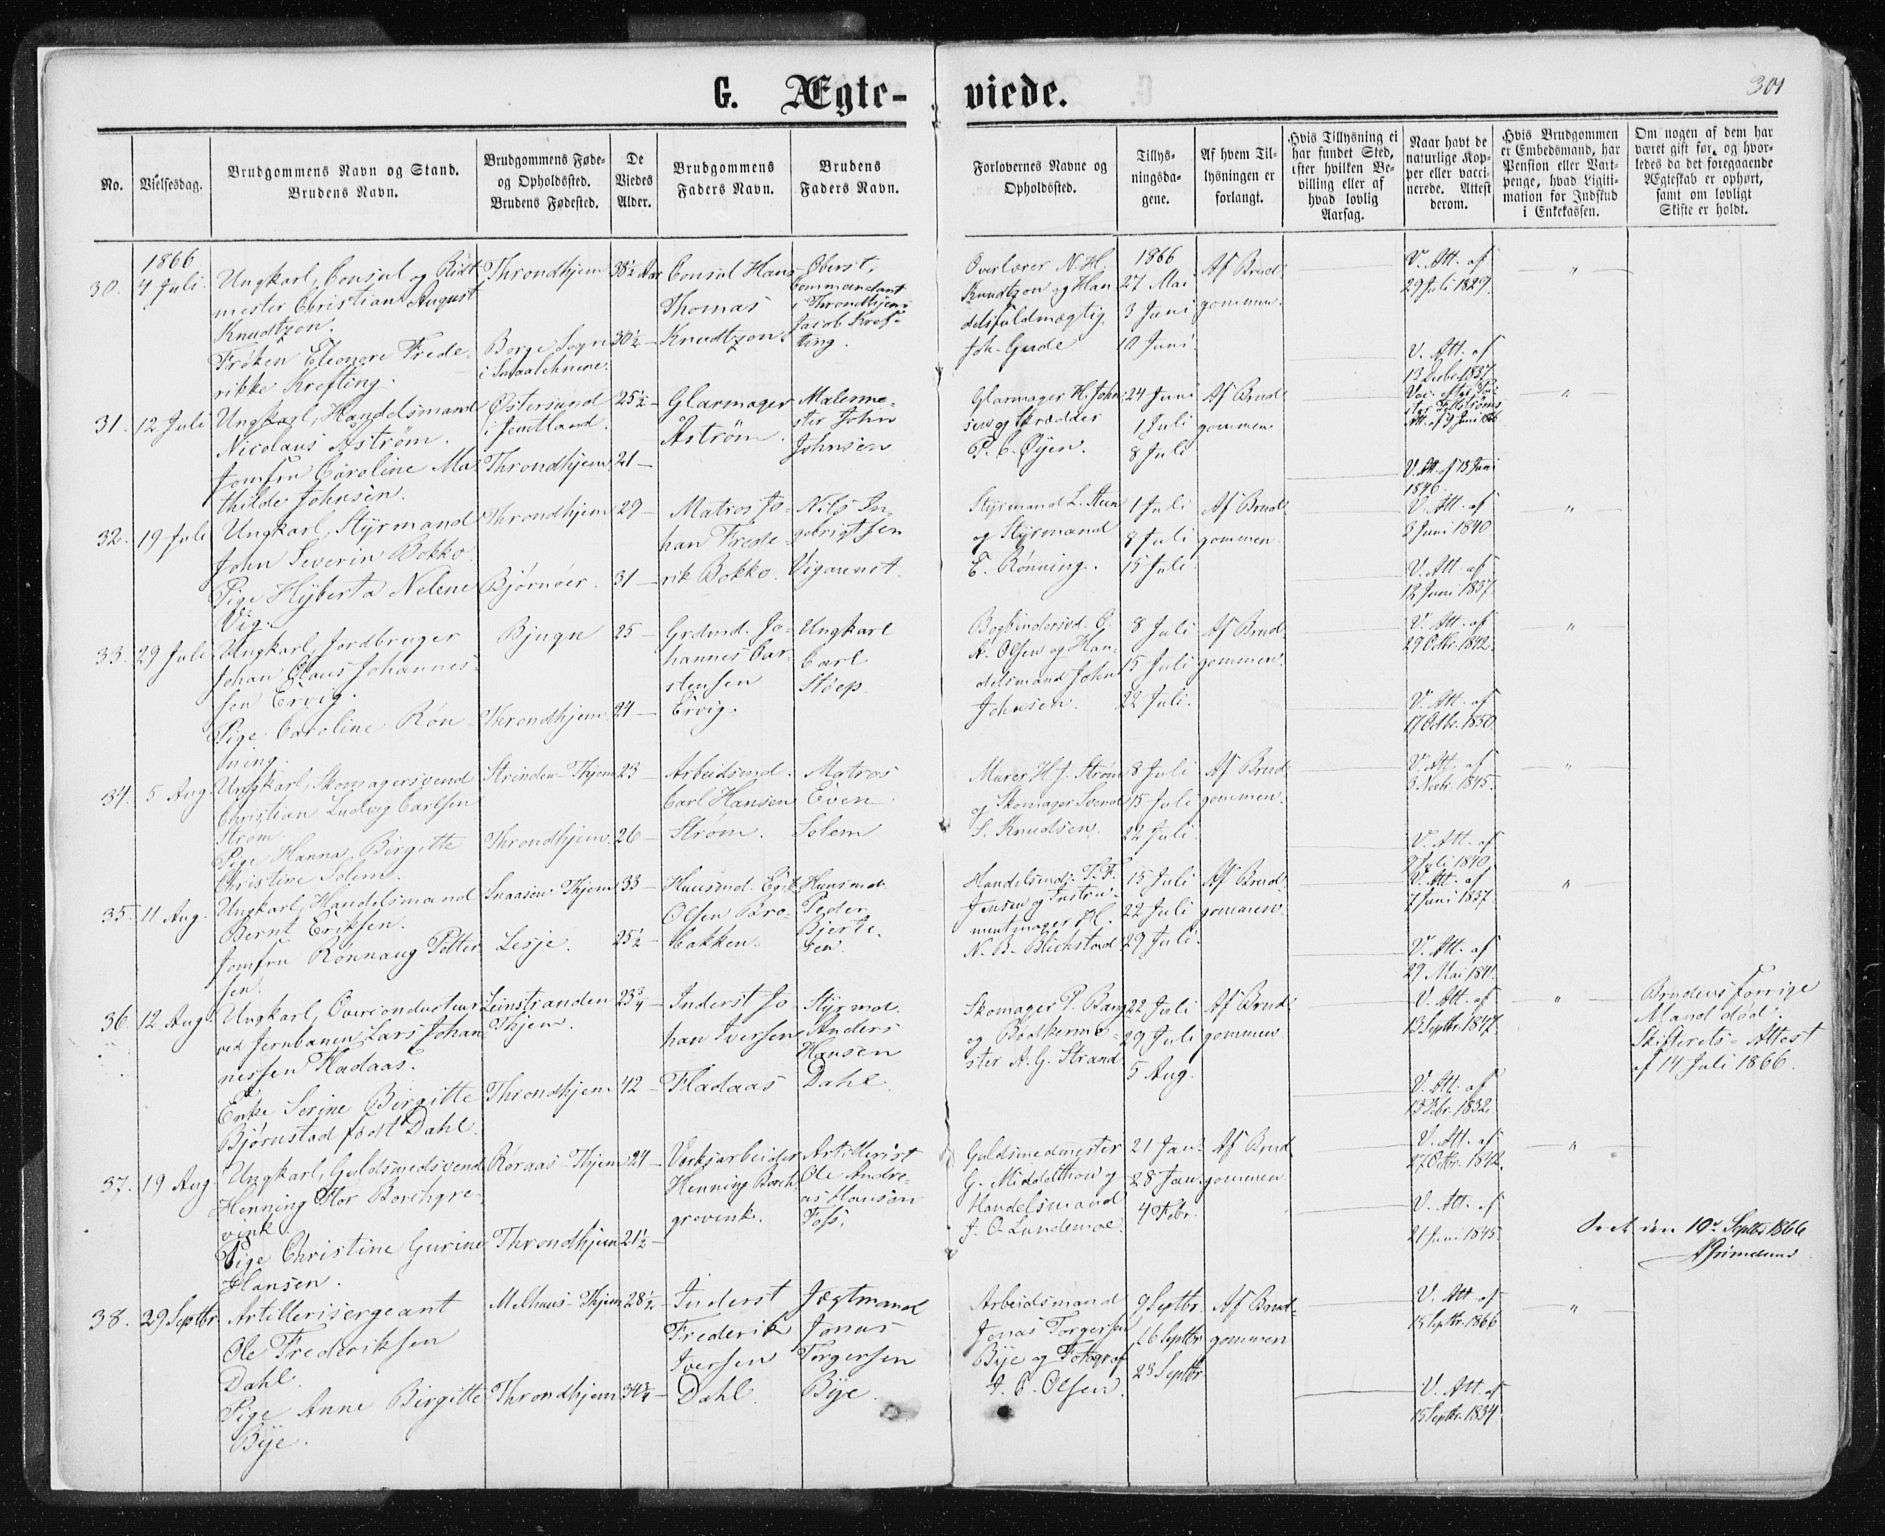 G. Ægte-
viede.
301
No.
Vielsesdag.
Brudgommens Navn og Stand.
Brudens Navn.
Brudgommens Føde-
og Opholdssted.
Brudens Fødested.
De
Viedes
Alder.
Brudgommens
Faders Navn.
Brudens
Faders Navn.
Forlovernes Navne og
Opholdssted.
Tillys-
ningsda-
gene.
Af hvem Til-
lysningen er
forlangt.
Hvis Tillysning ei
har fundet Sted,
efter hvilken Be-
villing eller af
hvad lovlig
Aarsag.
Naar havt de
naturlige Kop-
per eller vacci-
nerede. Attest
derom.
Hvis Brudgommen
er Embedsmand, har
Pension eller Vart-
penge, hvad Ligiti-
mation for Indskud
i Enkekassen.
Om nogen af dem har
været gift før, og hvor-
ledes da det foregaaende
Ægteskab er ophørt,
samt om lovligt
Skifte er holdt.
30.
1866
4 Juli.
Ungkarl, Consul og Ridt-
mester Christian August
Knudtzon.
Frøken Eleonore Frede-
rikke Krefting.
Throndhjem
Borge Sogn
i Smaalehnene.
38½ Aar
30½ —
Consul Hans
Thomas
Knudtzon.
Oberst,
Commandant
i Throndhjem
Jacob Kref-
ting.
Overlærer N. H.
Knudtzon og Han-
delsfuldmægtig
Joh. Gude
1866
27 Mai
3 Juni
10 Juni.
Af Brud-
gommen.
V. Att. af
29 Juli 1829.
V. Att. af
13 Decbr. 1837.
"
31.
12 Juli
Ungkarl, Handelsmand
Nicolaus Aström.
Jomfru Caroline Ma-
thilde Johnsen.
Østersund
i Jemtland.
Throndhjem
25½ —
21 —
Glarmager
Aström.
Malerme-
ster John
Johnsen
Glarmager H. John-
sen og Skrædder
P. C. Øyen.
24 Juni
1 Juli
8 Juli
Af Brud-
gommen
Att. af 9 Juni 1866
V. Att. af 13 Juni
1846.
"
32.
19 Juli
Ungkarl, Styrmand
John Severin Bokko.
Pige Hyberta Nelene
Vig.
Throndhjem
Bjørnøer.
29 —
31 —
Matros Jo-
han Frede-
rik Bokko.
Nils In-
gebrigtsen
Vigarenst.
Styrmand L. Steen
og Styrmand
E. Rønning.
1 Juli
8 Juli
15 Juli.
Af Brud-
gommen
V. Att. af
3 Juni 1840
V. Att. af
12 Juni 1837.
"
33.
29 Juli
Ungkarl, Jordbruger
Johan Claus Johannes-
sen Ervig.
Pige Caroline Røn-
ning.
Bjugn
Throndhjem.
25 —
24 —
Grdmd. Jo-
hannes Car-
stensen
Ervig.
Ungkarl
Carl
Støep.
Bogbindersvd. O.
A. Olsen og Han-
delsmand John
Johnsen.
8 Juli
15 Juli
22 Juli.
Af Brud-
gommen.
V. Att. af
29 Octbr. 1842.
V. Att. af
17 Octbr. 1850
"
34.
5 Aug.
Ungkarl, Skomagersvend
Christian Ludvig Carlsen
Strøm.
Pige Hanna Birgitte
Christine Solem.
Strinden - Thjem
Throndhjem.
23 —
26 —
Arbeidsmd.
Carl Hansen
Strøm.
Matros
Even
Solem
Murer H. J. Strøm
og Skomager Svend
S. Knudsen.
8 Juli
15 Juli
22 Juli.
Af Brud-
gommen.
V. Att. af
3 Novbr. 1845.
V. Att. af
9 Juli 1840.
"
35.
11 Aug.
Ungkarl, Handelsmand
Bernt Eriksen.
Jomfru Rønnaug Petter-
sen.
Snaasen - Thjem
Lesje.
33 —
25½ —
Huusmd. Erik
Olsen Bro-
bakken.
Huusmd.
Peder
Bjerte-
sen.
Handelsmd. T. F.
Jensen og Instru-
mentmager H.
N. B. Blichstad
15 Juli
22 Juli
29 Juli.
Af Brud-
gommen
V. Att. af
7 Juni 1837
V. Att. af
29 Mai 1841.
"
36.
12 Aug.
Ungkarl, Overconducteur
ved Jernbanen Lars Johan-
nessen Fladaas.
Enke Serine Birgitte
Bjørnstad født Dahl.
Leinstranden
Thjem.
Throndhjem
23¾ —
42 —
Inderst Jo-
han Iversen
Fladaas
Styrmd.
Anders
Hansen
Dahl
Skomager P. Bang
og Bødkerme-
ster A. G. Strand
22 Juli
29 Juli
5 Aug.
Af Brud-
gommen
V. Att. af
13 Septbr. 1847.
V. Att. af
13 Febr. 1832.
"
Brudens forrige
Mand død.
Skifterets-Attest
af 14 Juli 1866.
37.
19 Aug.
Ungkarl, Guldsmedsvend
Henning Stor Borchgre-
vink.
Pige Christine Gurine
Hansen.
Røraas - Thjem
Throndhjem
24 —
21½ —
Verksarbeider
Henning Borch-
grevink.
Artillerist
Ole Andre-
as Hansen
Foss.
Guldsmedmester
G. Middelthon og
Handelsmand
J. O. Lundemoe.
21 Jan.
28 Jan.
4 Febr.
Af Brud-
gommen
V. Att. af
27 Octbr. 1842.
V. Att. af
21 Juni 1845.
"
Seet den 10de Septbr 1866
38.
29 Septbr.
Artillerisergeant
Ole Frederiksen
Dahl.
Pige Anne Birgitte
Bye.
Melhuus - Thjem
Throndhjem
28½ —
34¾ —
Inderst
Frederik
Iversen
Dahl.
Jægtmand
Jonas
Torgersen
Bye.
Arbeidsmand
Jonas Torgersen
Bye og Fotograf
J. O. Olsen.
9 Septbr.
16 Septbr.
23 Septbr
Af Brud-
gommen
V. Att. af
13 Septbr. 1866
V. Att. af
15 Septbr. 1834.
"